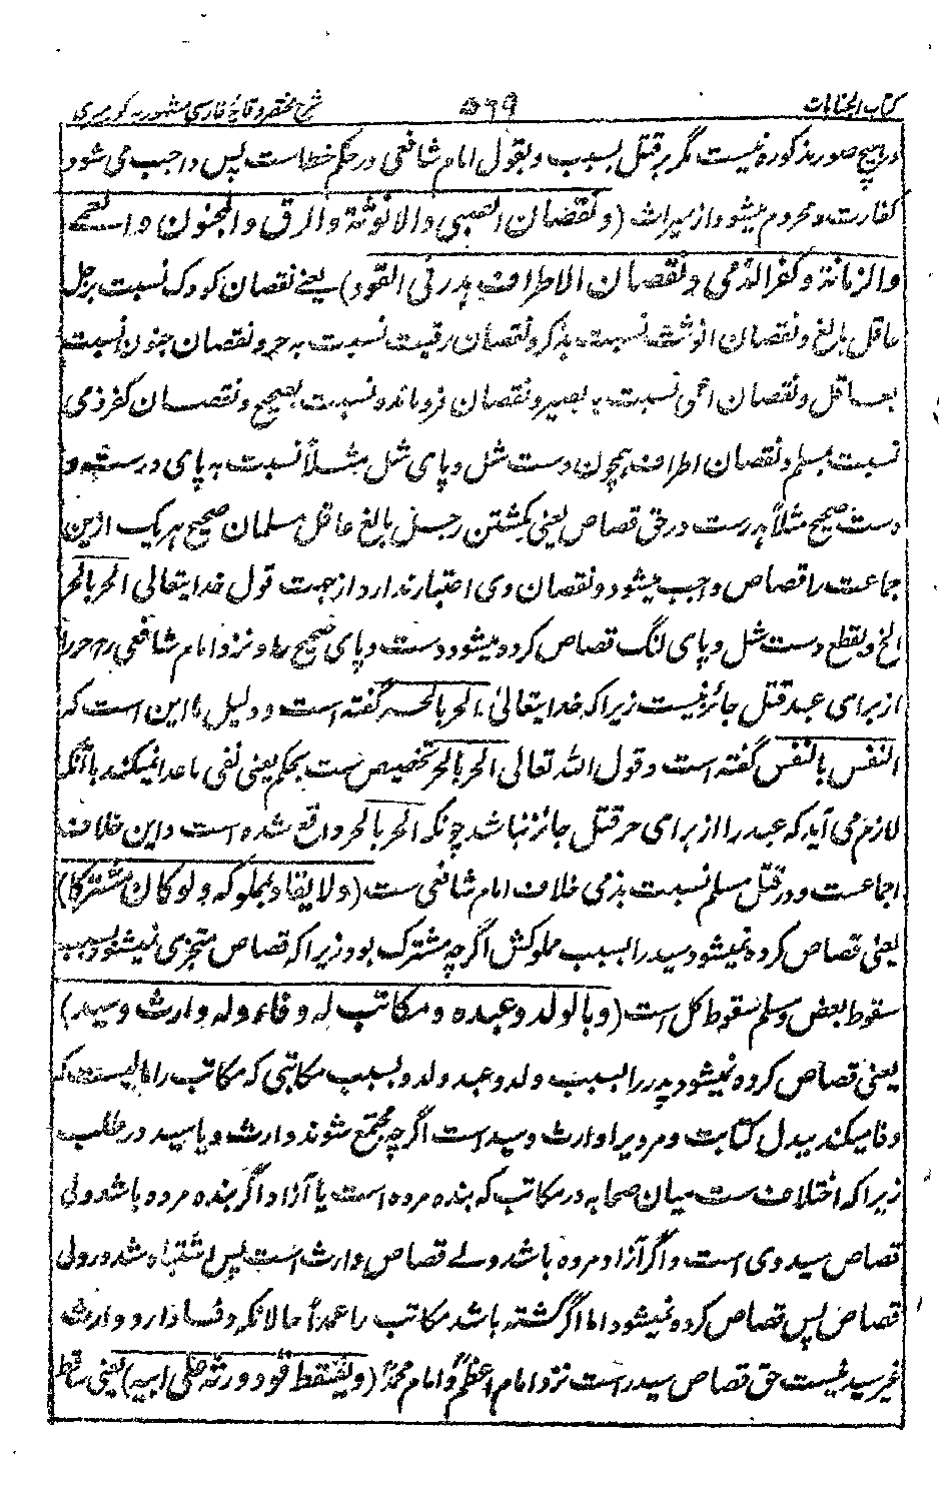 کتاب الجنایات ۵۶۹ شرح مختصر وقایهٔ فارسی مشهور به کور میری
در هیچ صور مذکوره نیست مگر بر قتل بسبب و بقول امام شافعی در حکم خطاست پس واجب می شود
کفارت و محروم میشود از میراث (ونقصان الصبی والانوثة والرق والجنون والعمے
والزمانة وکفر الذمی ونقصان الاطراف هدر فی القود) یعنے نقصان کودک نسبت برجل
عاقل بالغ و نقصان انوثت نسبت بذکر و نقصان رقیت نسبت به حر و نقصان جنون نسبت
بعاقل و نقصان اعمی نسبت به بصیر و نقصان فروماندہ نسبت بصحیح و نقصان کفر ذمی
نسبت بمسلم و نقصان اطراف همچون دست شل و پای شل مثلاً نسبت به پای درست و
دست صحیح مثلاً هدرست در حق قصاص یعنی بکشتن رجل بالغ عاقل مسلمان صحیح هر یک ازین
جماعت را قصاص واجب میشود و نقصان وی اعتبار ندارد از جهت قول خدایتعالی الحر بالحر
الخ و بقطع دست شل و پای لنگ قصاص کرده میشود دست و پای صحیح را و نزد امام شافعی رح حر را
از برای عبد قتل جائز نیست زیرا که خدایتعالیٰ الحر بالحر گفته است و دلیل ما این است که
النفس بالنفس گفته است و قول الله تعالی الحر بالحر تخصیص ست بحکم یعنی نفی ما عدا نمیکند با آنکه
لازم می آید که عبد را از برای حر قتل جائز نباشد چونکه الحر بالحر واقع شده است و این خلاف
اجماعست و در قتل مسلم نسبت بذمی خلاف امام شافعی ست (ولا یقاد بمملوکه ولو کان مشترکا)
یعنی قصاص کرده نمیشود سید را بسبب مملوکش اگرچه مشترک بود زیرا که قصاص متجزی نمیشود بسبب
سقوط بعض و مسلم سقوط کل است (وبالولد وعبده ومکاتب له وفاء وله وارث وسید)
یعنی قصاص کرده نمیشود پدر را بسبب ولد و عبد ولد و بسبب مکاتبی که مکاتب را مالیست که
وفا میکند ببدل کتابت و مرو یرا وارث و سید است اگرچه مجتمع شوند وارث و یا سید در طلب
زیرا که اختلاف ست میان صحابه در مکاتب که بنده مرده است یا آزاد اگر بنده مرده باشد ولی
قصاص سید وی است و اگر آزاد مرده باشد ولے قصاص وارث است پس اشتباه شد در ولی
قصاص پس قصاص کرده نمیشود اما اگر کشته باشد مکاتب را عمداً حالانکه وفا دارد و وارث
غیر سید نیست حق قصاص سید راست نزد امام اعظمؒ و امام محمدؒ (ویسقط قود ورثه علی ابیه) یعنی ساقط